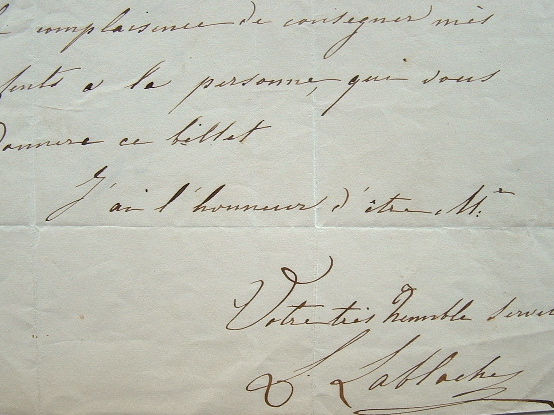 complaisence de consegner mès
a la personne, qui vous
donnera ce billet
J'ai l'honneur d'être Mr.
Votre très humble servi
L. Lablache